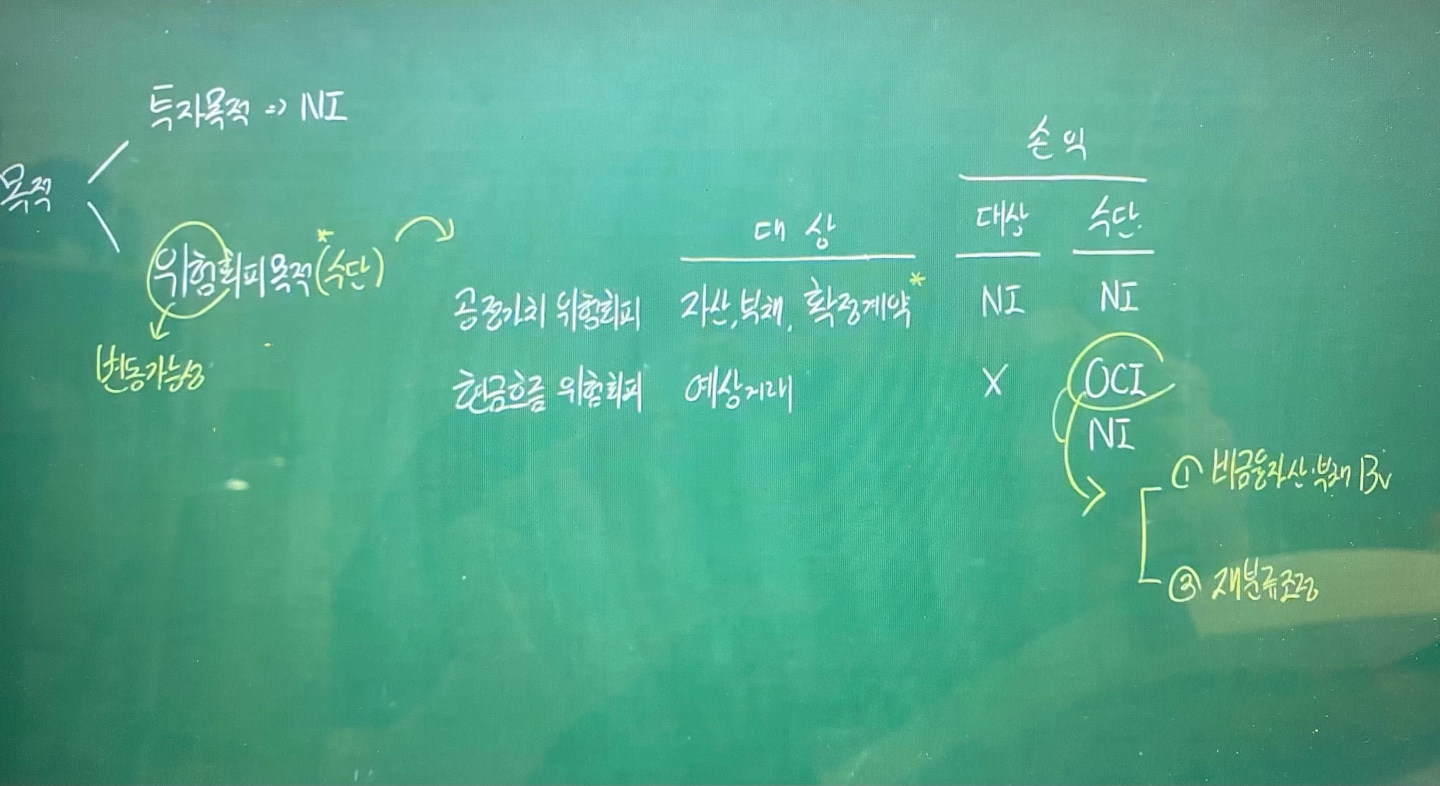 투자목적 => NI
목적
위험회피목적(수단)*
변동가능성
손익
대상
대상 수단
공정가치 위험회피 자산, 부채, 확정계약* NI NI
현금흐름 위험회피 예상거래 X OCI
NI
① 비금융자산·부채 BV
③ 재분류조정